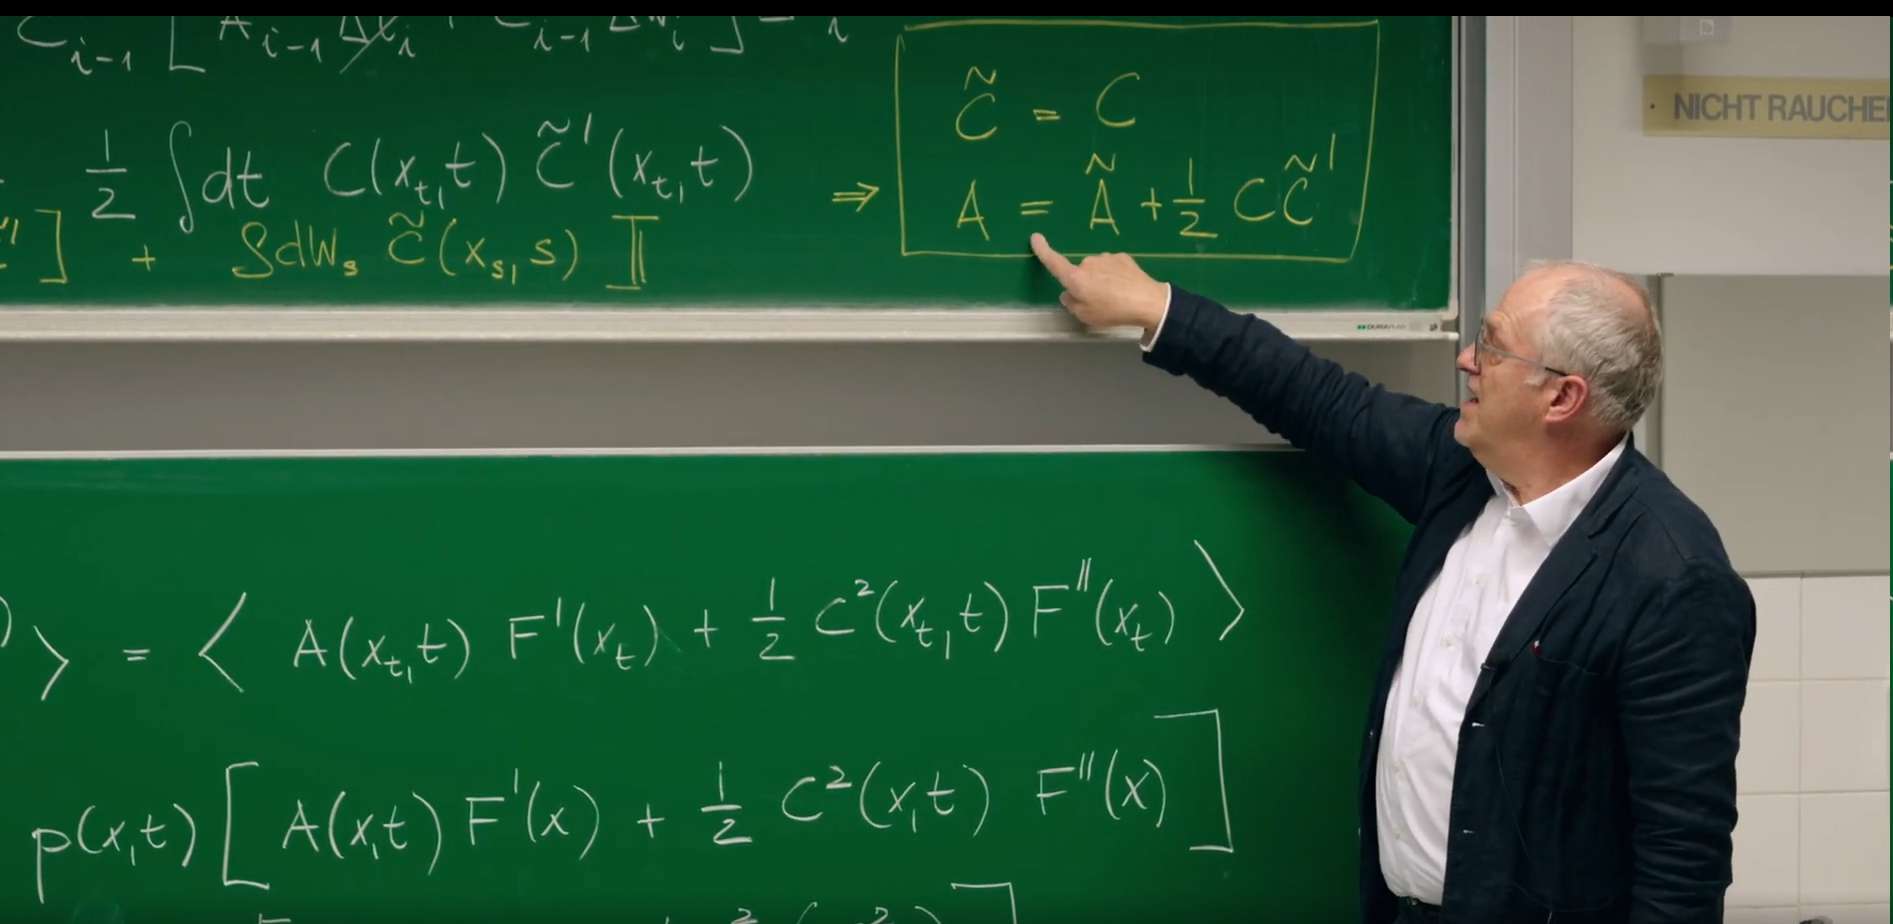 C_{i-1} [ A_{i-1} Δt_i + C_{i-1} ΔW_i ]
1/2 ∫dt C(x_t,t) C̃'(x_t,t)
] + ∫dW_s C̃(x_s,s) ]
⇒
C̃ = C
A = Ã + 1/2 C C̃'
NICHT RAUCHE
DURAPLAN
⟩ = ⟨ A(x_t,t) F'(x_t) + 1/2 C²(x_t,t) F''(x_t) ⟩
p(x,t) [ A(x,t) F'(x) + 1/2 C²(x,t) F''(x) ]